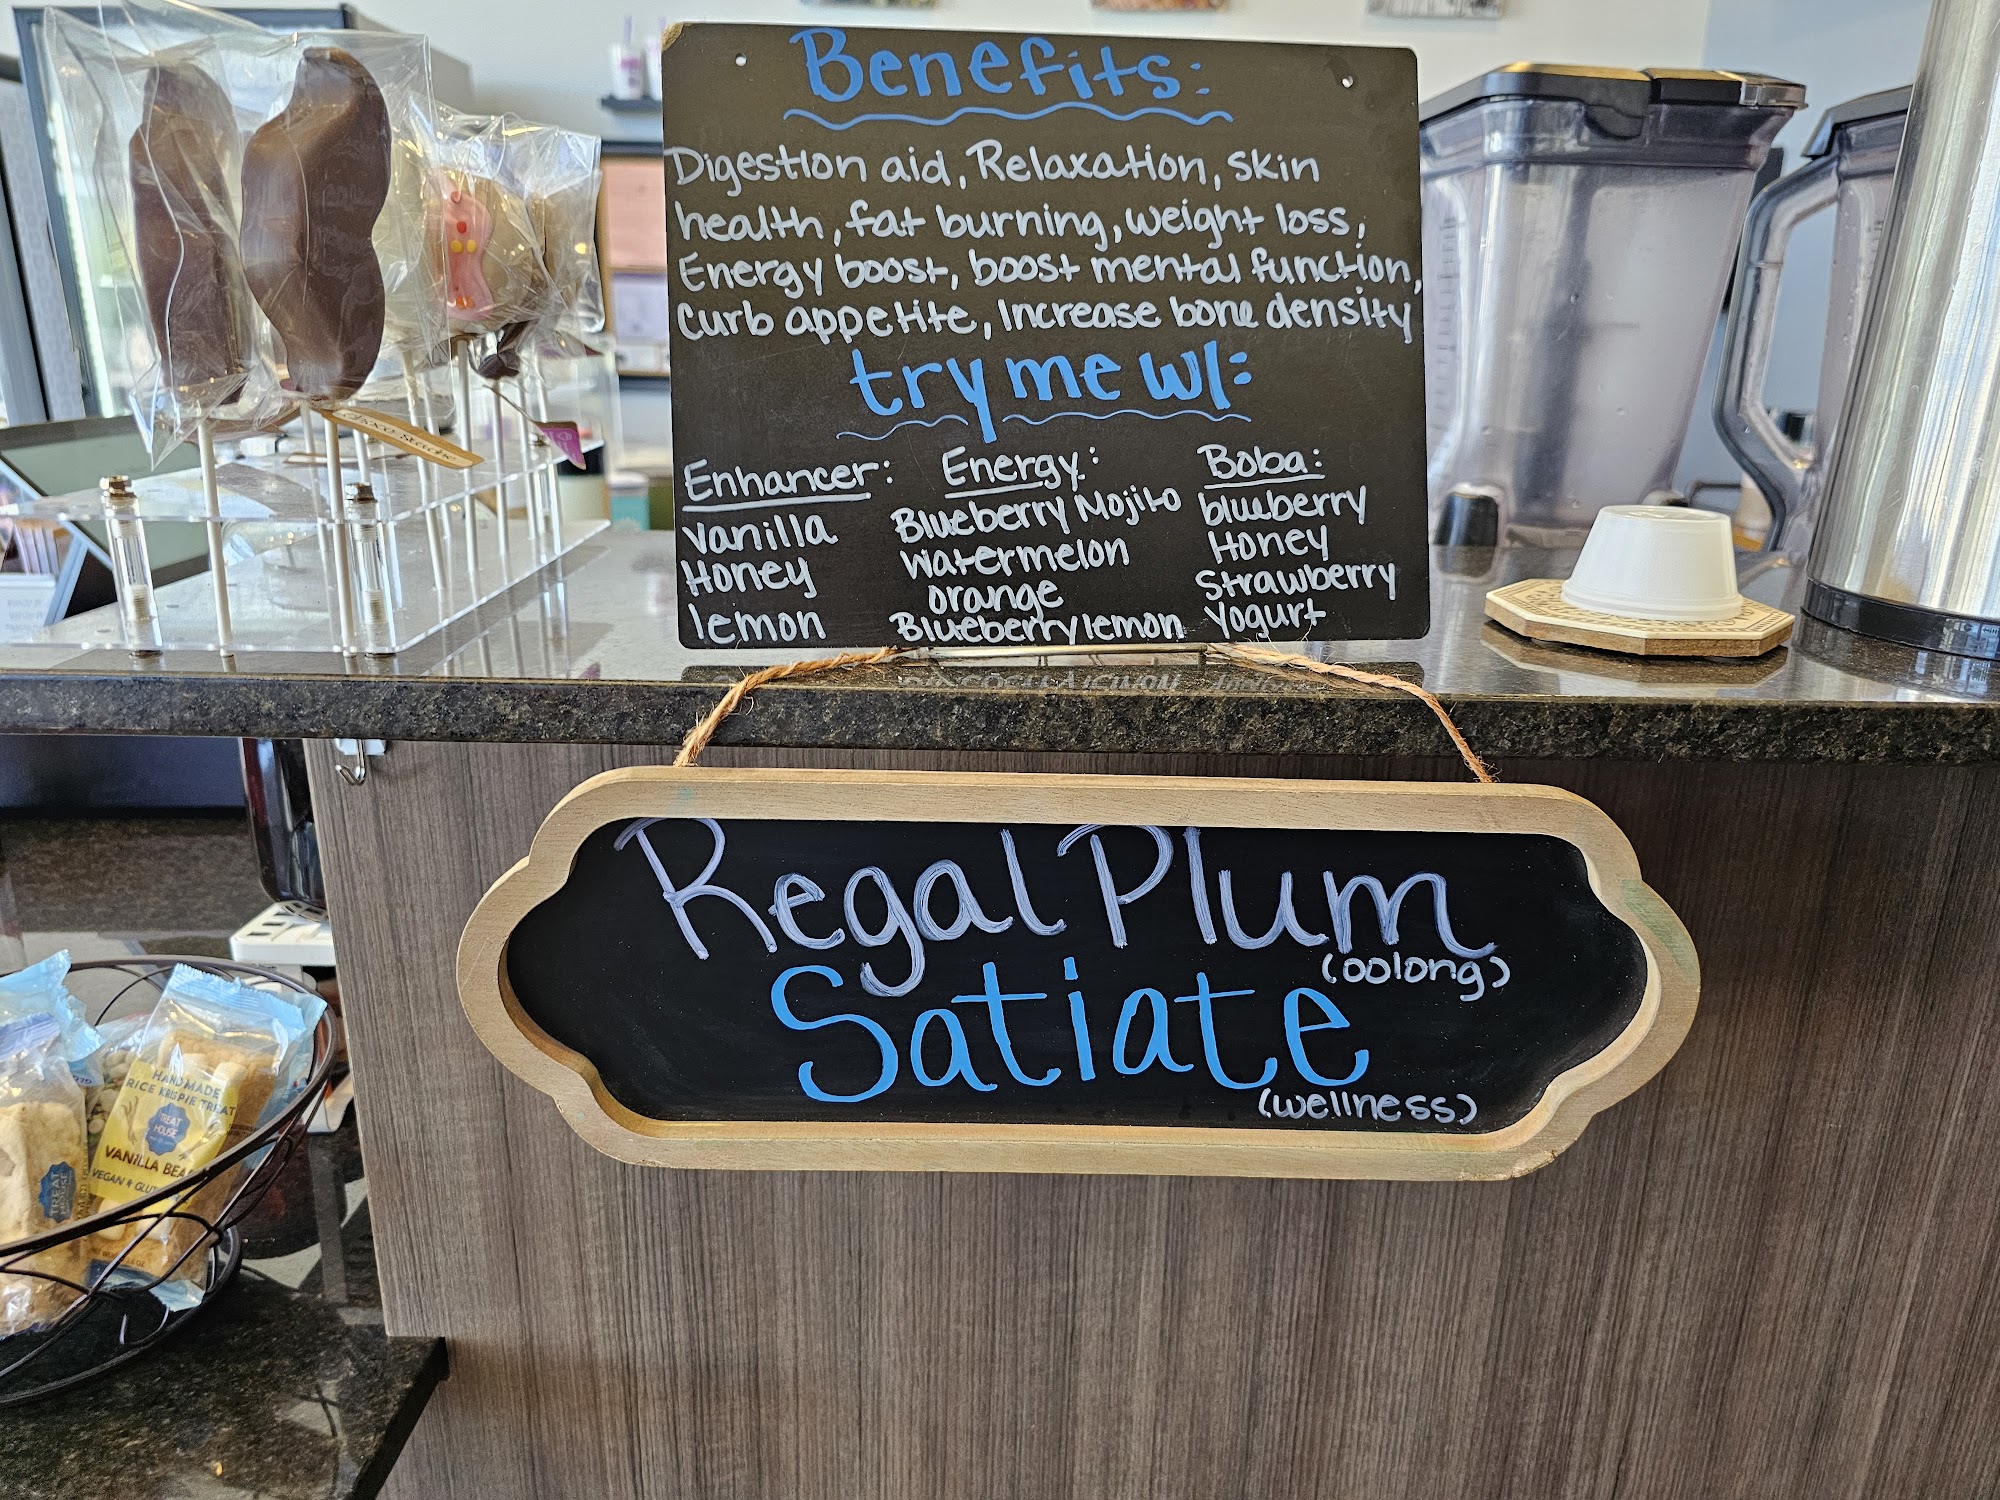 Benefits:
Digestion aid, Relaxation, skin
health, fat burning, weight loss,
Energy boost, boost mental function,
curb appetite, Increase bone density
try me w/:
Enhancer:
vanilla
Honey
lemon
Energy:
Blueberry Mojito
watermelon
orange
Blueberry lemon
Boba:
blueberry
Honey
Strawberry
Yogurt
Regal Plum
(oolong)
Satiate
(wellness)
HANDMADE
RICE KRISPIE TREAT
TREAT
HOUSE
VANILLA BEA
VEGAN & GLUT
TREAT